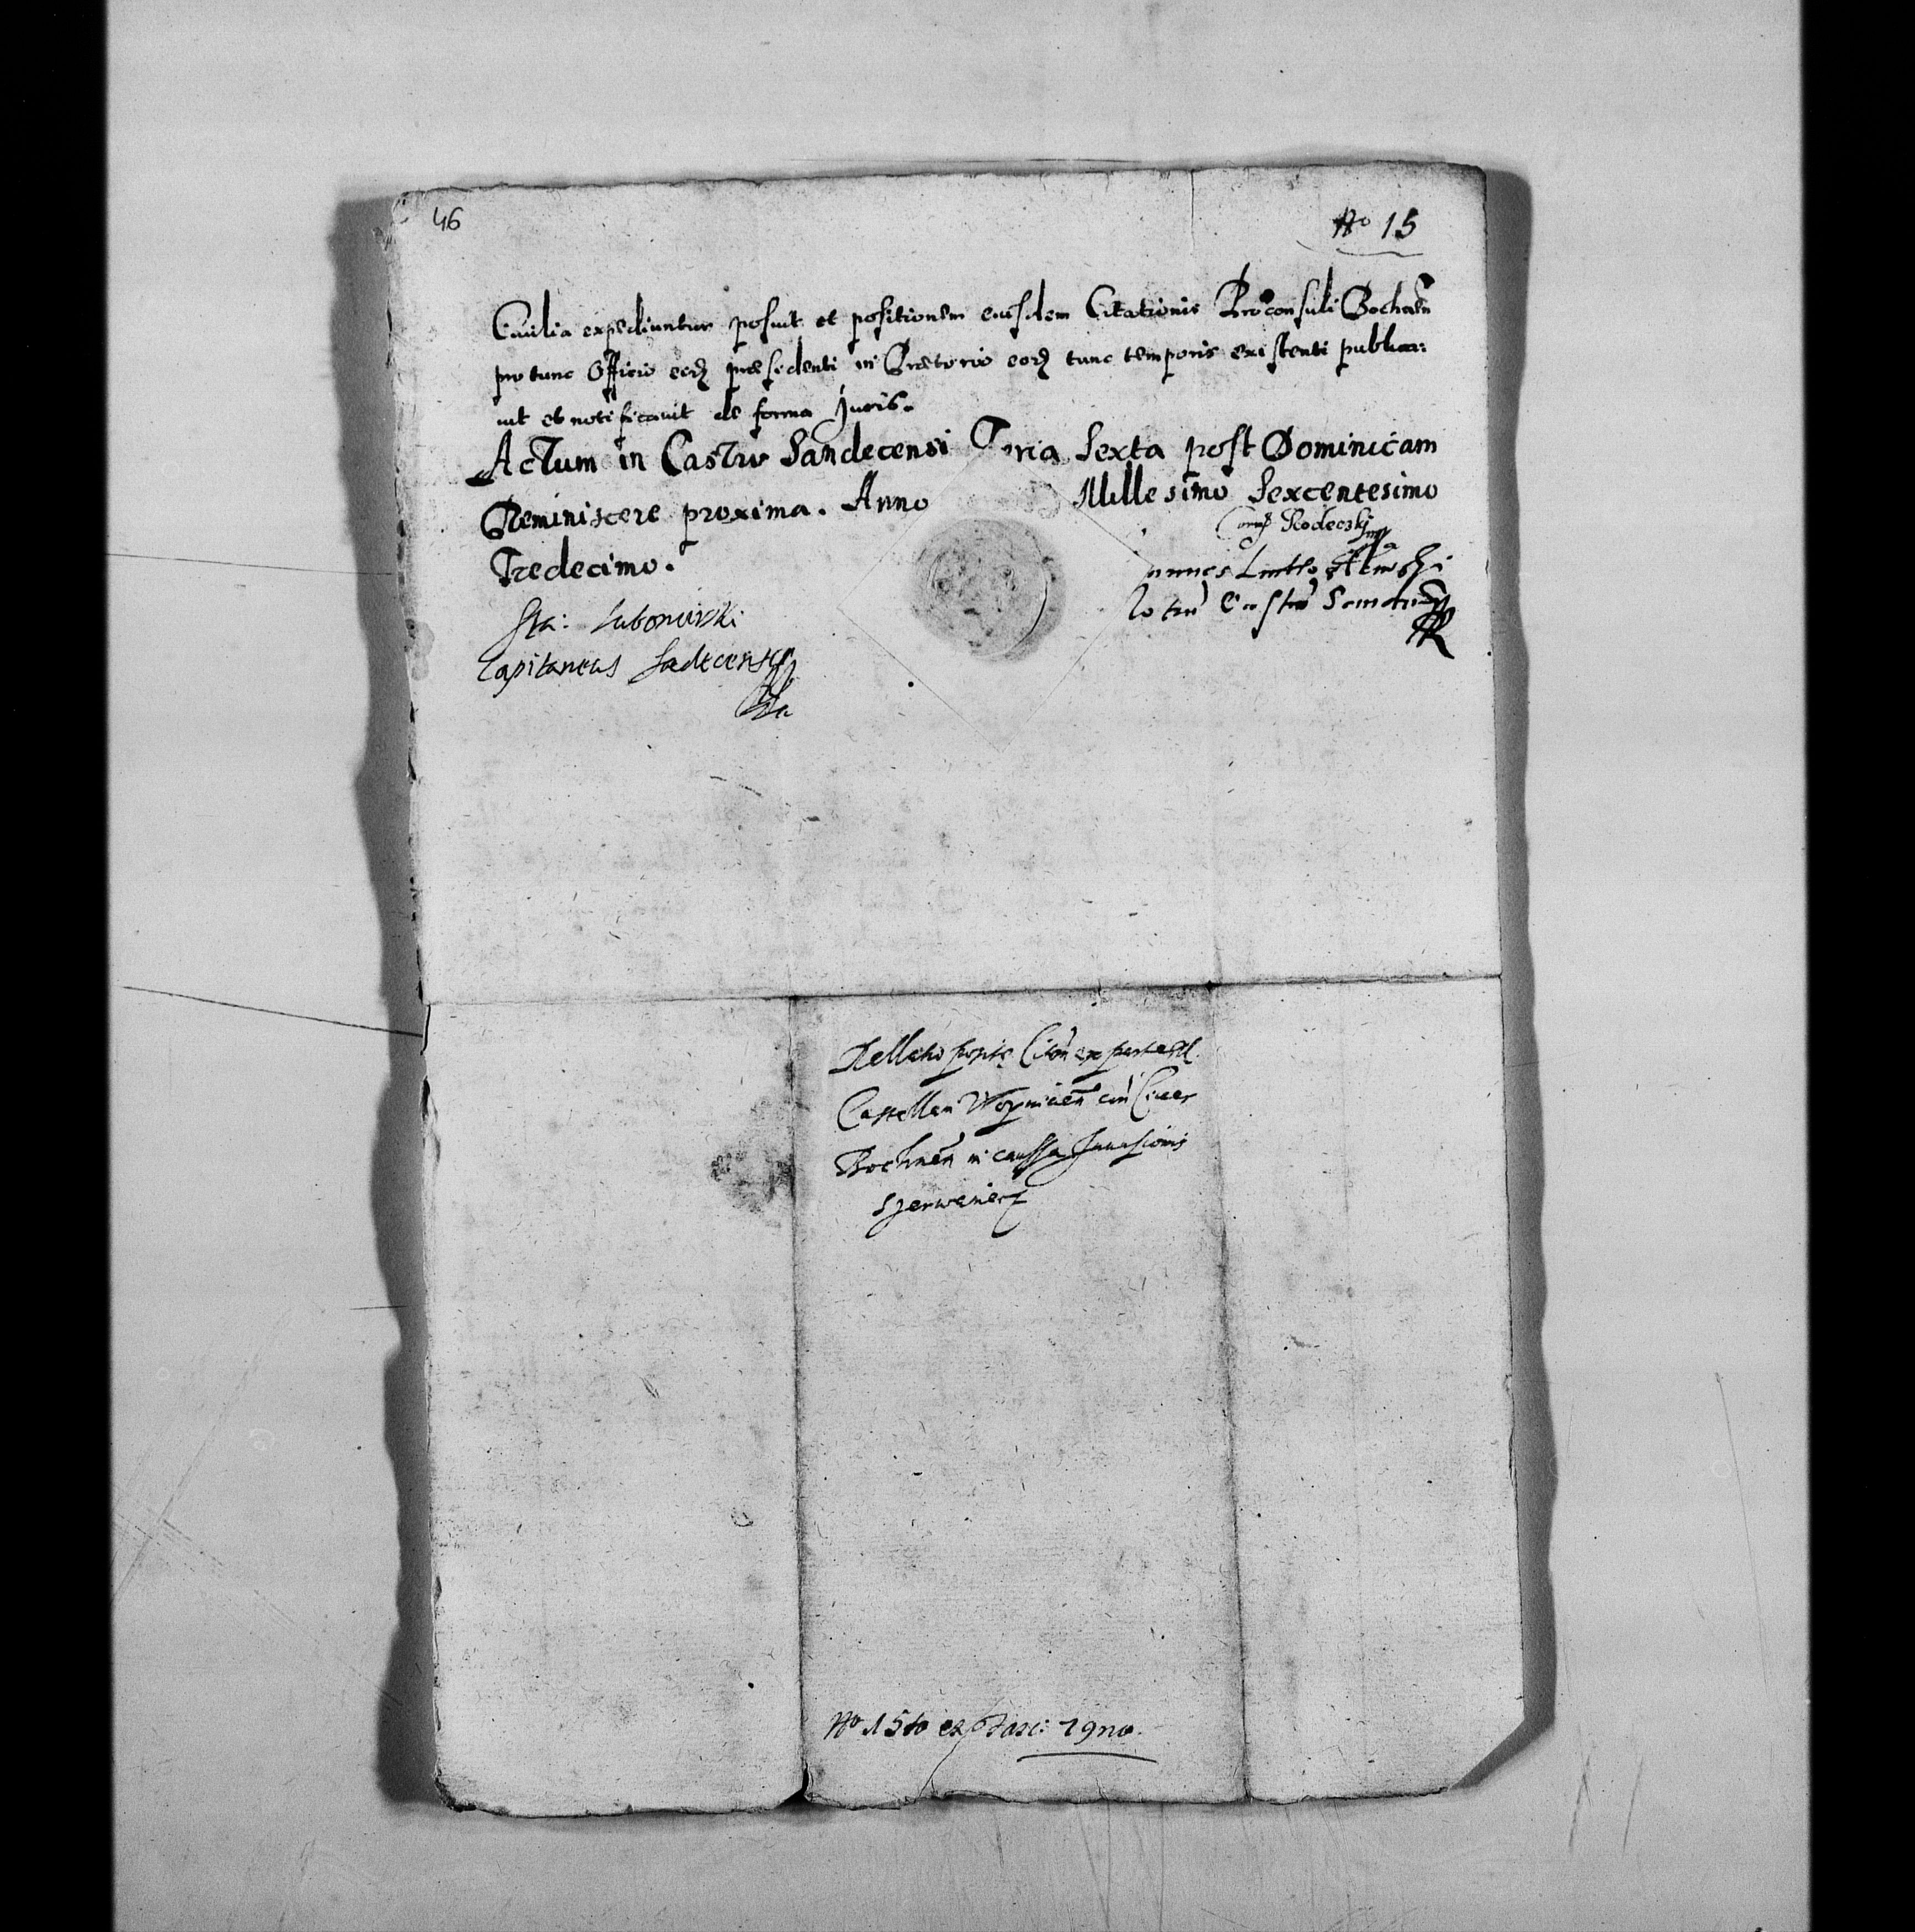 46
No 15
Ciuilia expediuntur posuit et positionem eiusdem Citationis Proconsuli Bochnen
pro tunc Officio eorz præsidenti in Prætorio eorz tunc temporis existenti publica:
uit et notificauit de forma Juris.
Actum in Castro Sandecensi Feria Sexta post Dominicam
Reminiscere proxima. Anno Millesimo Sexcentesimo
Tredecimo.
Rodeczki
Sta: Lubomirski
Capitaneus Sadecensis
Castrn
Rellatio Citon ex parte
Castellan Woynicen cum Ciues
Bochnen in caussa Inuasionis
No 15to ex Fasc: 19no.